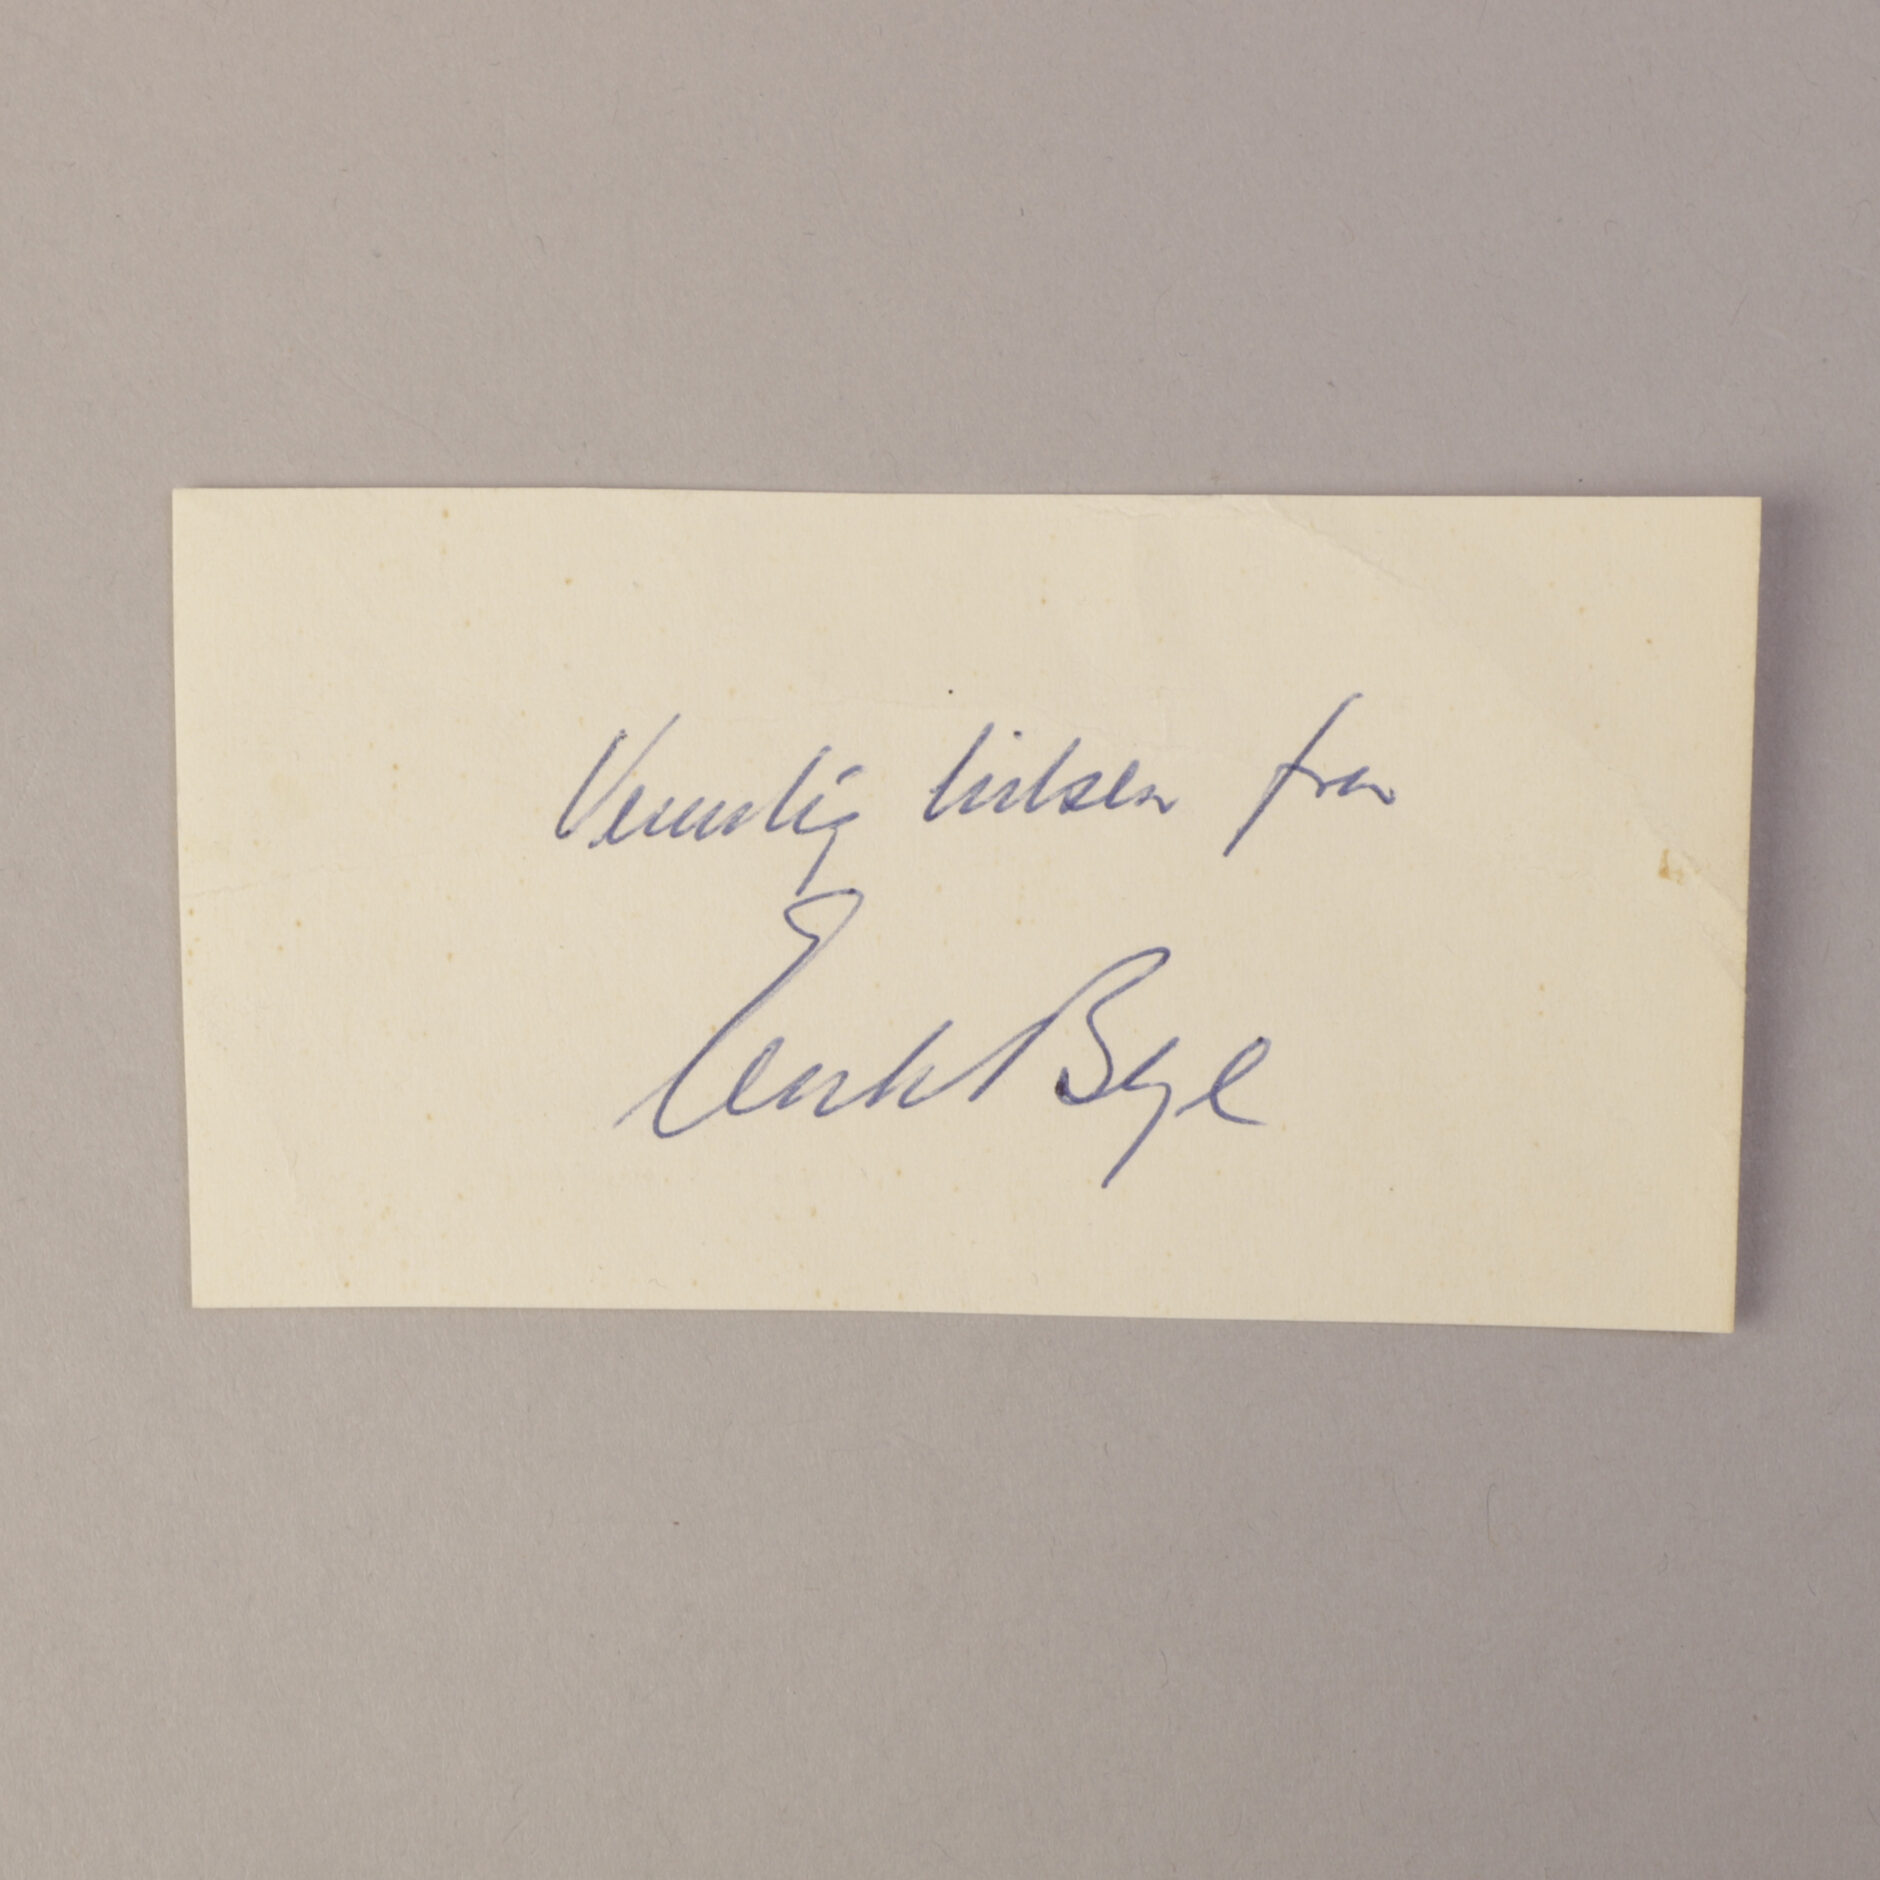 Vennlig hilsen fra
Erik Bye